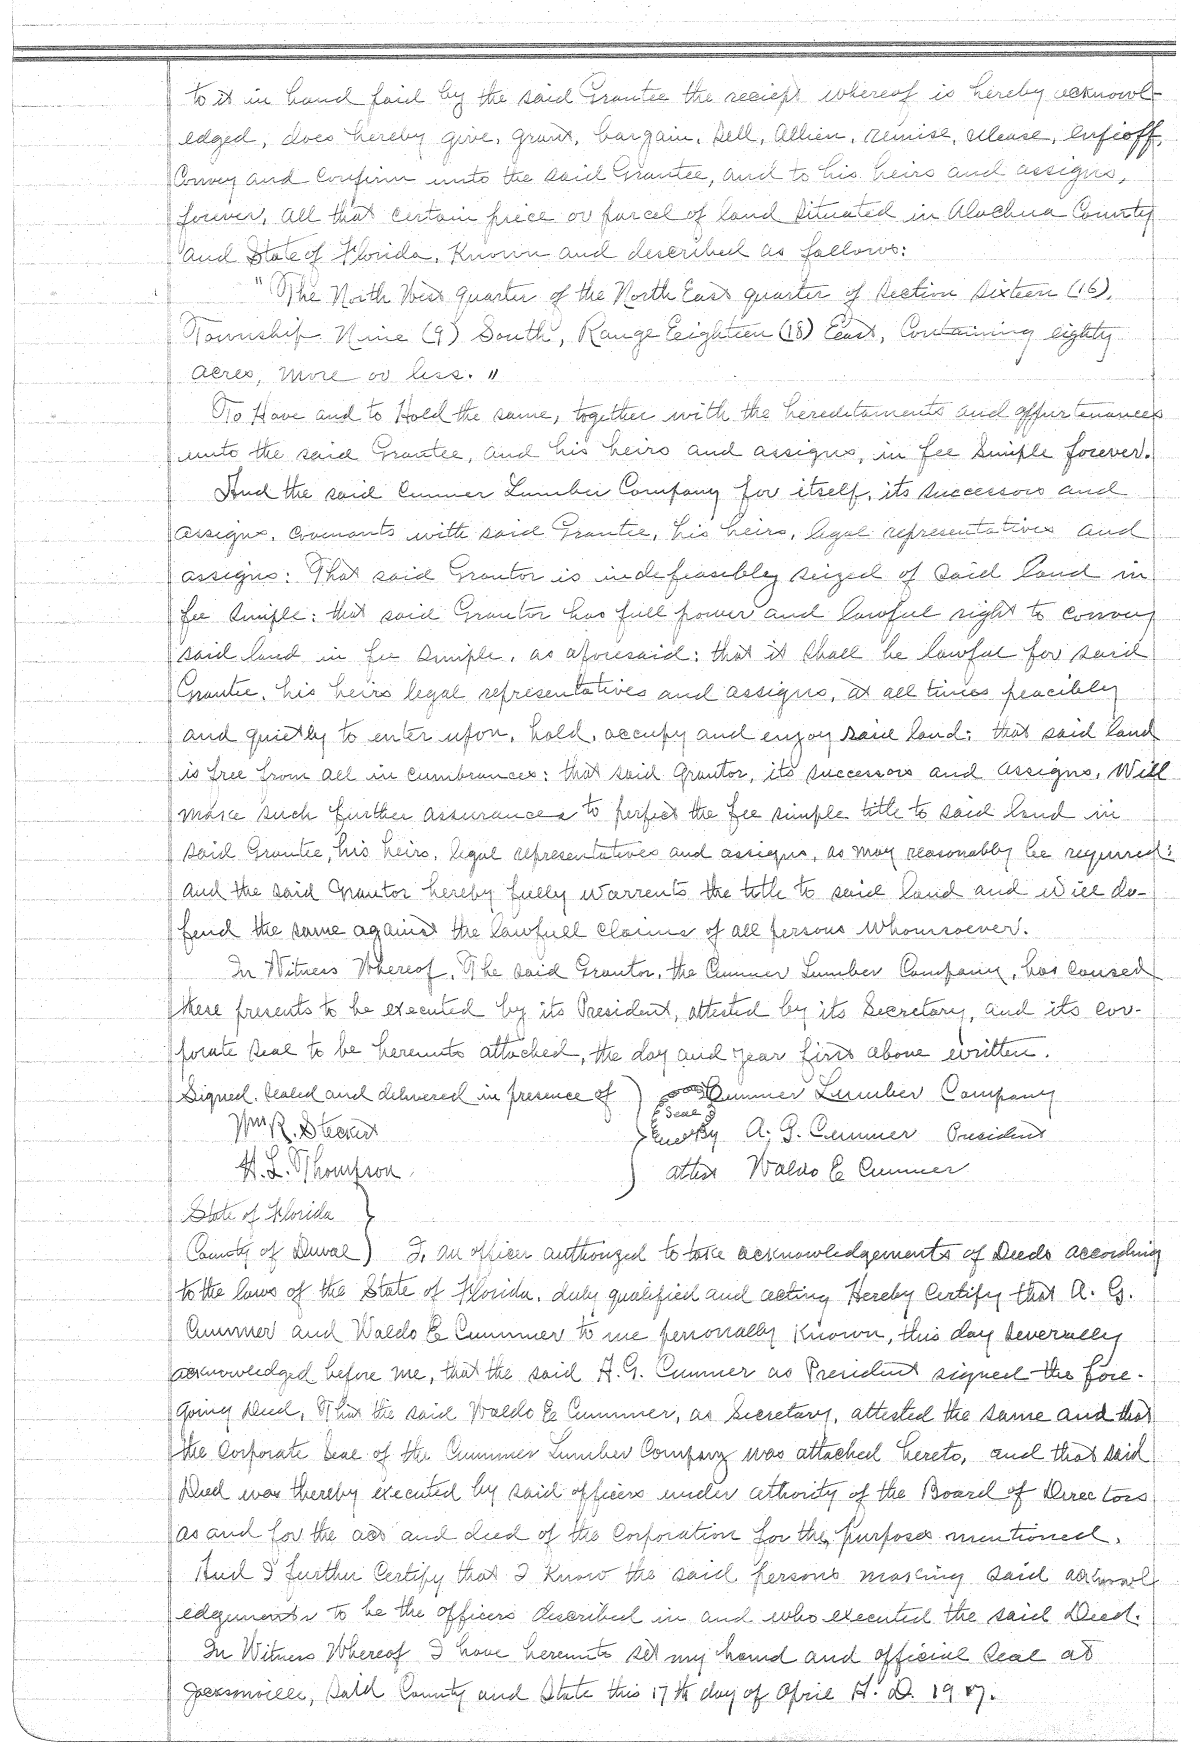 to it in hand paid by the said Grantee the reciept whereof is hereby acknowl-
edged, does hereby give, grant, bargain, Sell, Allien, remise, release, enfieoff,
Convey and Confirm unto the said Grantee, and to his heirs and assigns,
forever, all that certain piece or parcel of land situated in Alachua County
and State of Florida, Known and described as follows:
"The North West quarter of the North East quarter of Section Sixteen (16),
Township Nine (9) South, Range Eeighteen (18) East, Containing eighty
acres, more or less."
To Have and to Hold the same, together with the hereditaments and appurtenances
unto the said Grantee, and his heirs and assigns, in fee Simple forever.
And the said Cummer Lumber Company for itself, its successors and
assigns, covenants with said Grantee, his heirs, legal representatives and
assigns: That said Grantor is indefeasibly seized of said land in
fee simple: that said Grantor has full power and lawful right to convey
said land in fee simple, as aforesaid: that it shall be lawful for said
Grantee, his heirs legal representatives and assigns, at all times peacibly
and quietly to enter upon, hold, occupy and enjoy said land; that said land
is free from all in cumbrances: that said Grantor, its successors and assigns, Will
make such further assurances to perfect the fee simple title to said land in
said Grantee, his heirs, legal representatives and assigns, as may reasonably be required:
and the said Grantor hereby fully warrents the title to said land and will de-
fend the same against the lawfull claims of all persons whomsoever.
In Witness Whereof, The said Grantor, the Cummer Lumber Company, has caused
these presents to be executed by its President, attested by its Secretary, and its cor-
porate seal to be hereunto attached, the day and year first above written.
Signed, sealed and delivered in presence of Cummer Lumber Company
Seal
Wm R. Steckert By A. G. Cummer President
H. L. Thompson attest Waldo E Cummer
State of Florida
County of Duval) I, an officer authorized to take acknowledgements of Deeds according
to the laws of the State of Florida, duly qualified and acting Hereby Certify that A. G.
Cummer and Waldo E Cummer to me personally Known, this day severally
acknowledged before me, that the said A. G. Cummer as President signed the fore-
going Deed, That the said Waldo E Cummer, as Secretary, attested the same and that
the Corporate Seal of the Cummer Lumber Company was attached hereto, and that said
Deed was thereby executed by said officers under athority of the Board of Directors
as and for the act and deed of the Corporation for the purposes mentioned.
And I further Certify that I Know the said persons making said acknowl
edgements to be the officers described in and who executed the said Deed.
In Witness Whereof I have hereunto set my hand and official Seal at
Jacksonville, Said County and State this 17th day of April A. D. 1907.